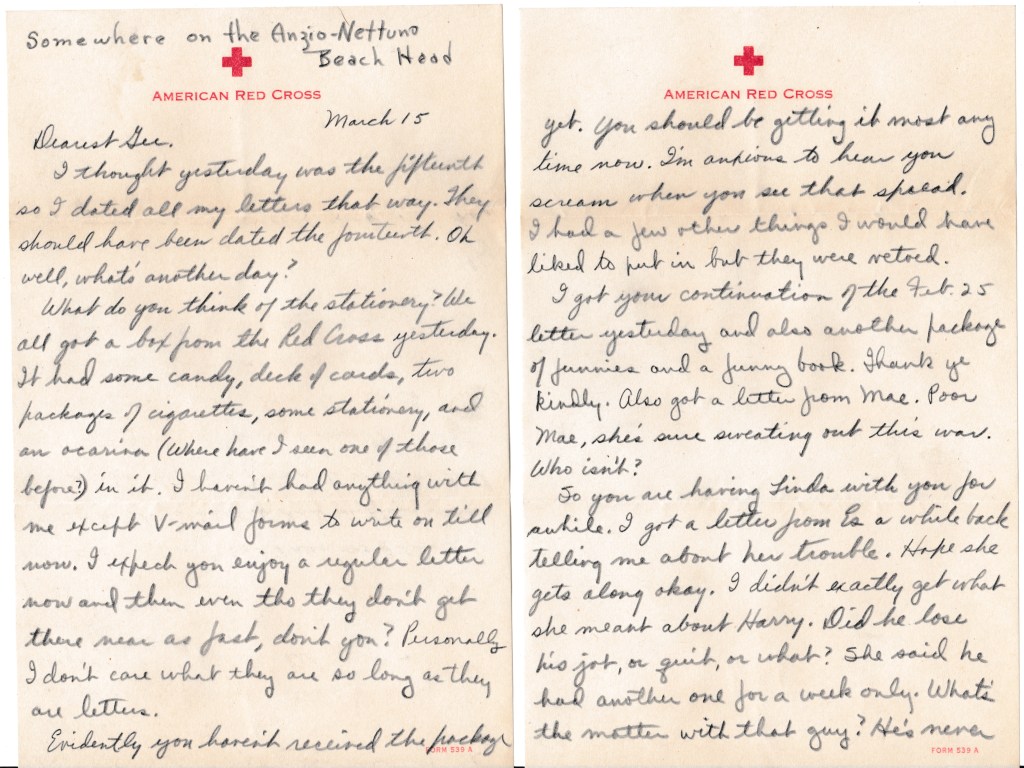 Somewhere on the Anzio-Nettuno
Beach Head
AMERICAN RED CROSS
March 15
Dearest Gee.
I thought yesterday was the fifteenth
so I dated all my letters that way. They
should have been dated the fourteenth. Oh
well, what's another day?
What do you think of the stationery? We
all got a box from the Red Cross yesterday.
It had some candy, deck of cards, two
packages of cigarettes, some stationery, and
an ocarina (Where have I seen one of those
before?) in it. I haven't had anything with
me except V-mail forms to write on till
now. I expect you enjoy a regular letter
now and then even tho they don't get
there near as fast, don't you? Personally
I don't care what they are so long as they
are letters.
Evidently you haven't received the package
FORM 539 A
AMERICAN RED CROSS
yet. You should be getting it most any
time now. I'm anxious to hear you
scream when you see that spread.
I had a few other things I would have
liked to put in but they were vetoed.
I got your continuation of the Feb. 25
letter yesterday and also another package
of funnies and a funny book. Thank ye
kindly. Also got a letter from Mae. Poor
Mae, she's sure sweating out this war.
Who isn't?
So you are having Linda with you for
awhile. I got a letter from Es a while back
telling me about her trouble. Hope she
gets along okay. I didn't exactly get what
she meant about Harry. Did he lose
his job, or quit, or what? She said he
had another one for a week only. What's
the matter with that guy? He's never
FORM 539 A